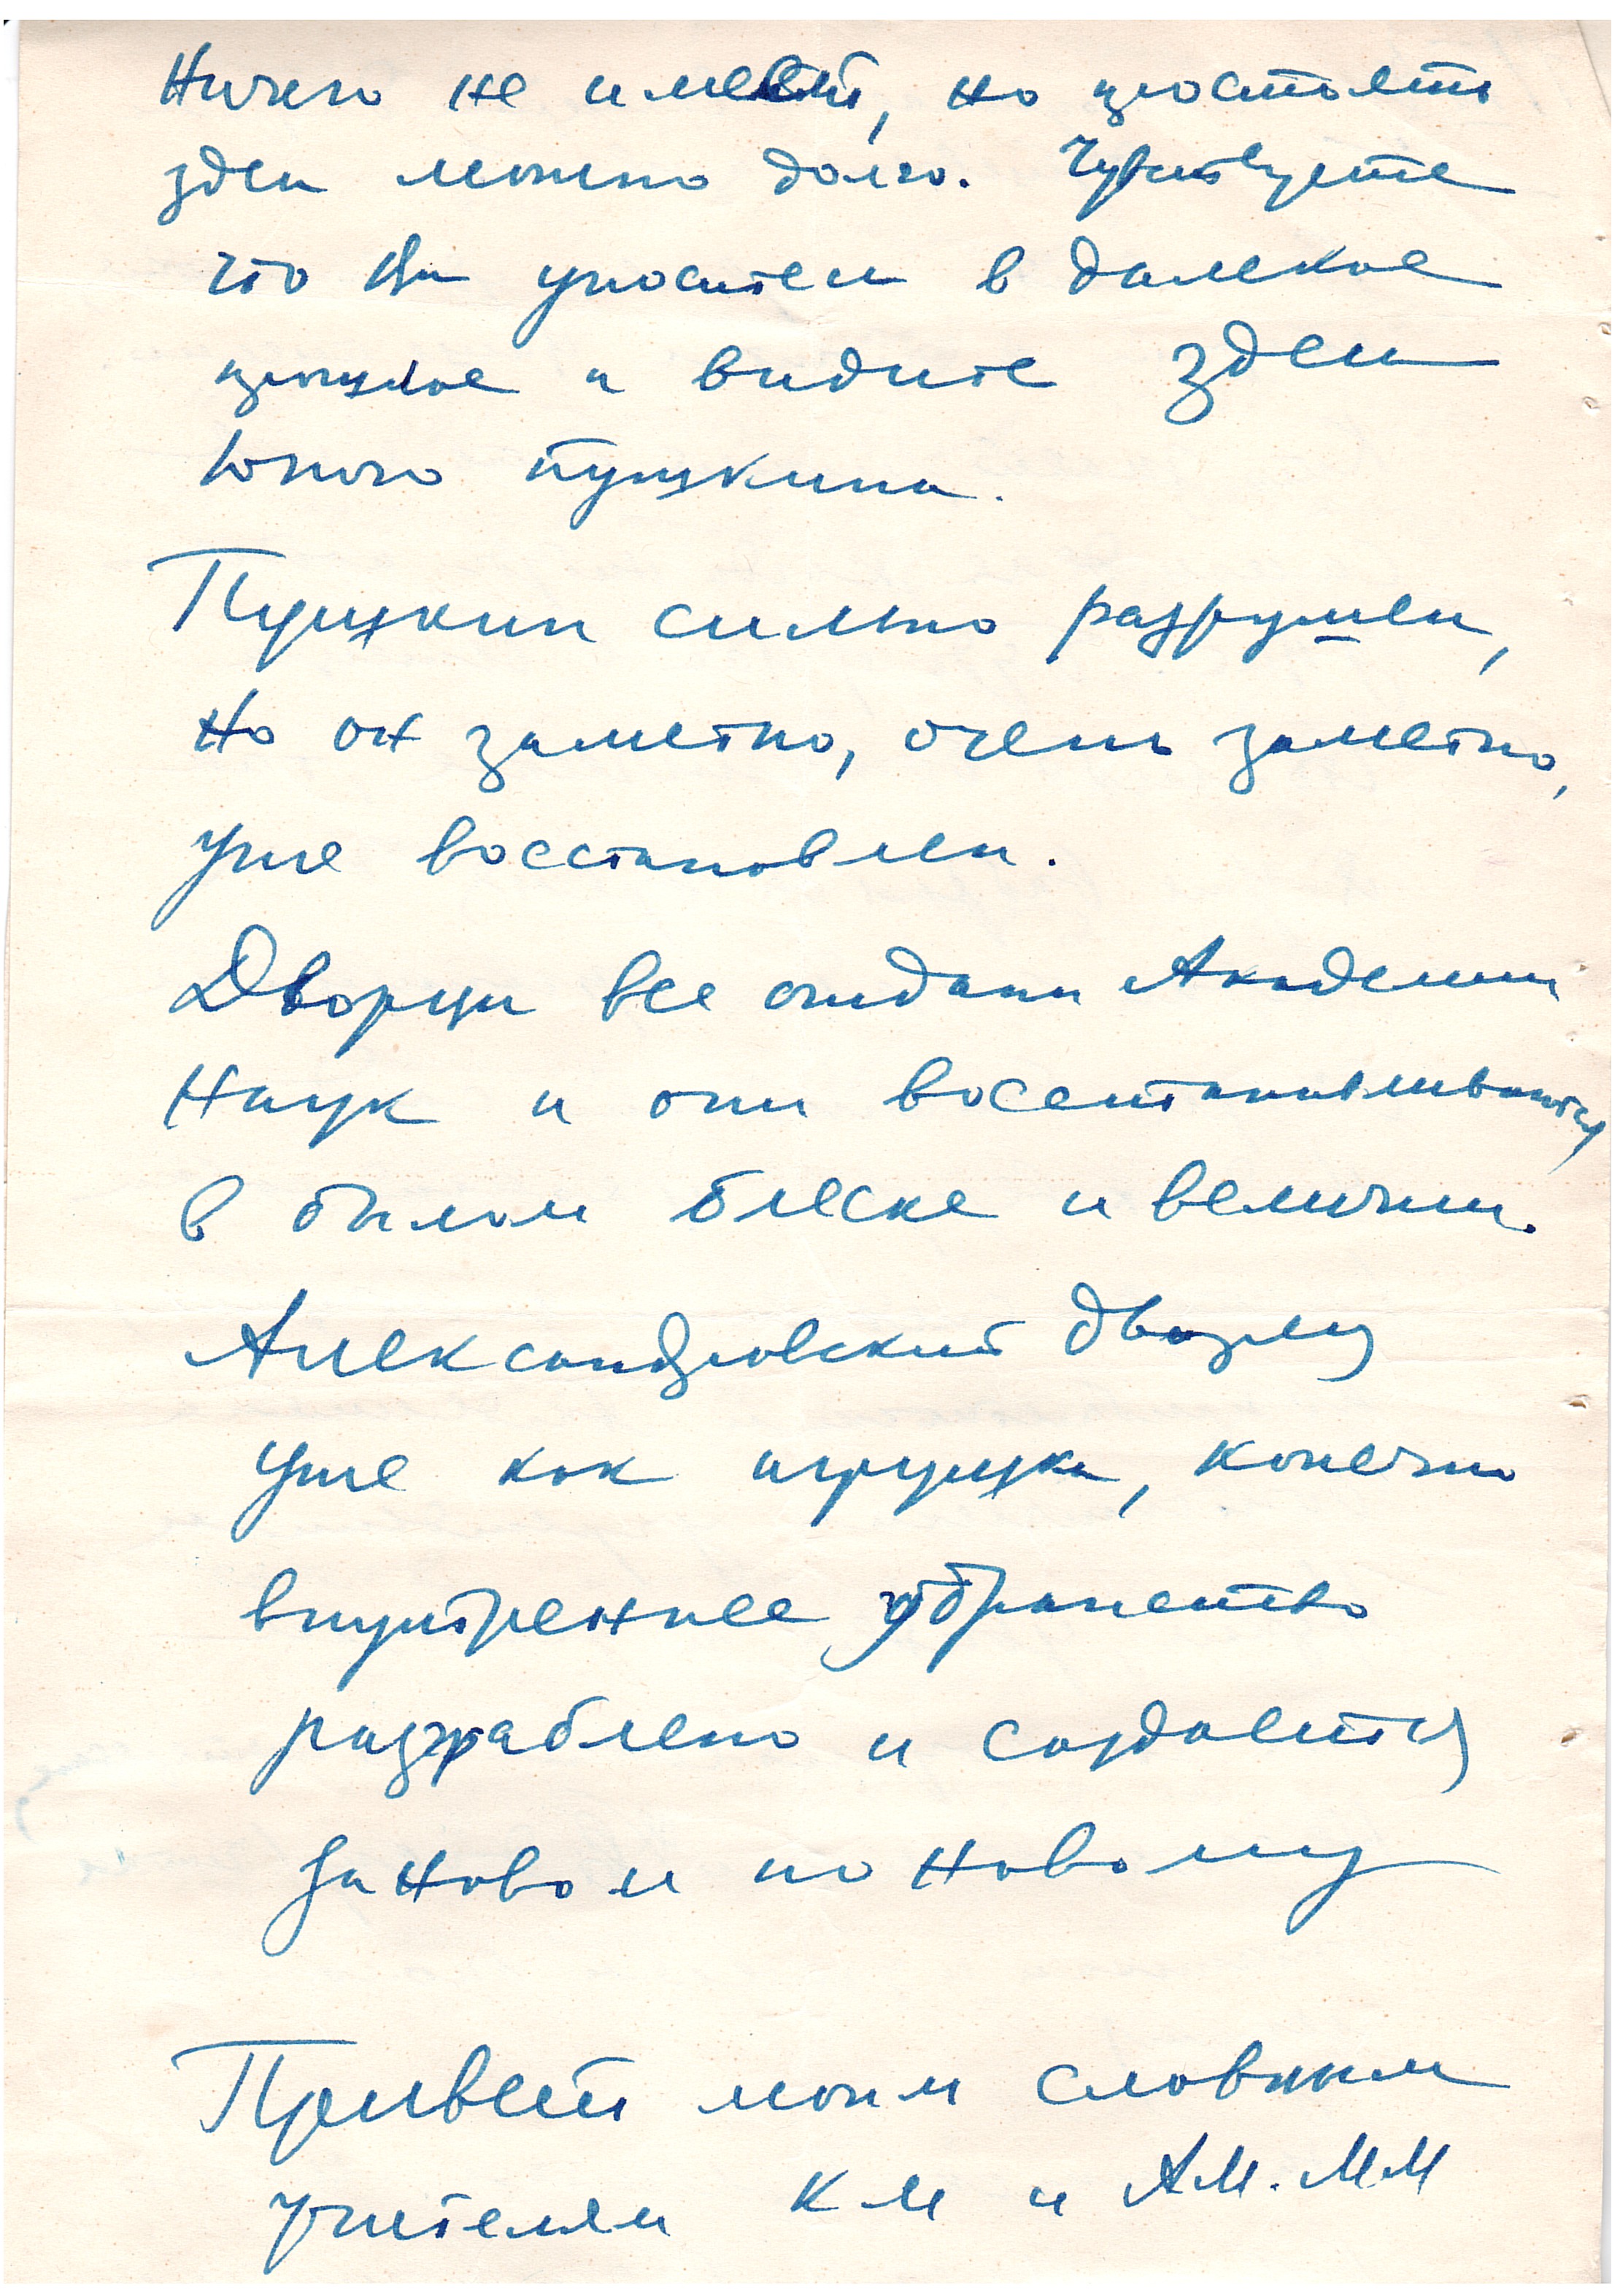 Ничего не имеет, но простоять
здесь можно долго. Чувствуете
что Вы уноситесь в далекое
прошлое и видите здесь
юного Пушкина.
Пушкин сильно разрушен,
но он заметно, очень заметно,
уже восстановлен.
Дворцы все отданы Академии
Наук и они восстанавливаются
в былом блеске и величии.
Александровский дворец
уже как игрушка, конечно
внутреннее убранство
разграблено и создается
заново и по новому
Привет моим славным
учителям К М и А.М. М М